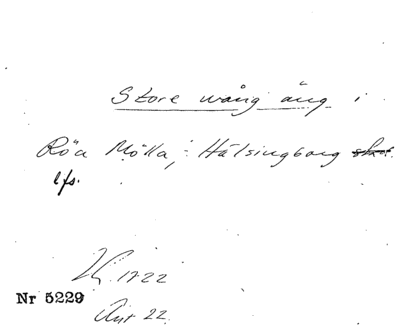 Store wång äng i
Röa Mölla, i Hälsingborg
lfs.
1722
Nr 5229
Akt 22.